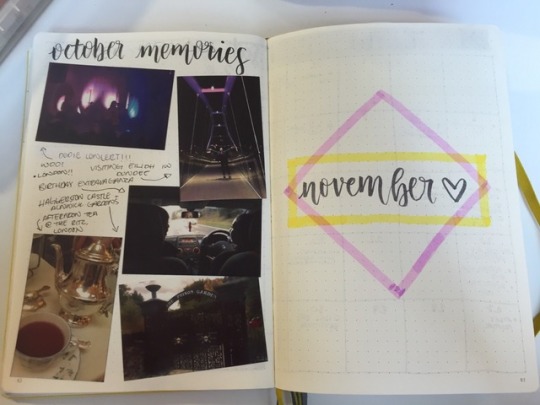 october memories
CONCERT!!!
WOO!
LONDON!!
VISITING EILIDH IN
DUNDEE
BIRTHDAY EXTRAVAGANZA
HAGGERSTON CASTLE +
ALNWICK GARDENS
AFTERNOON TEA
@ THE RITZ,
LONDON
november